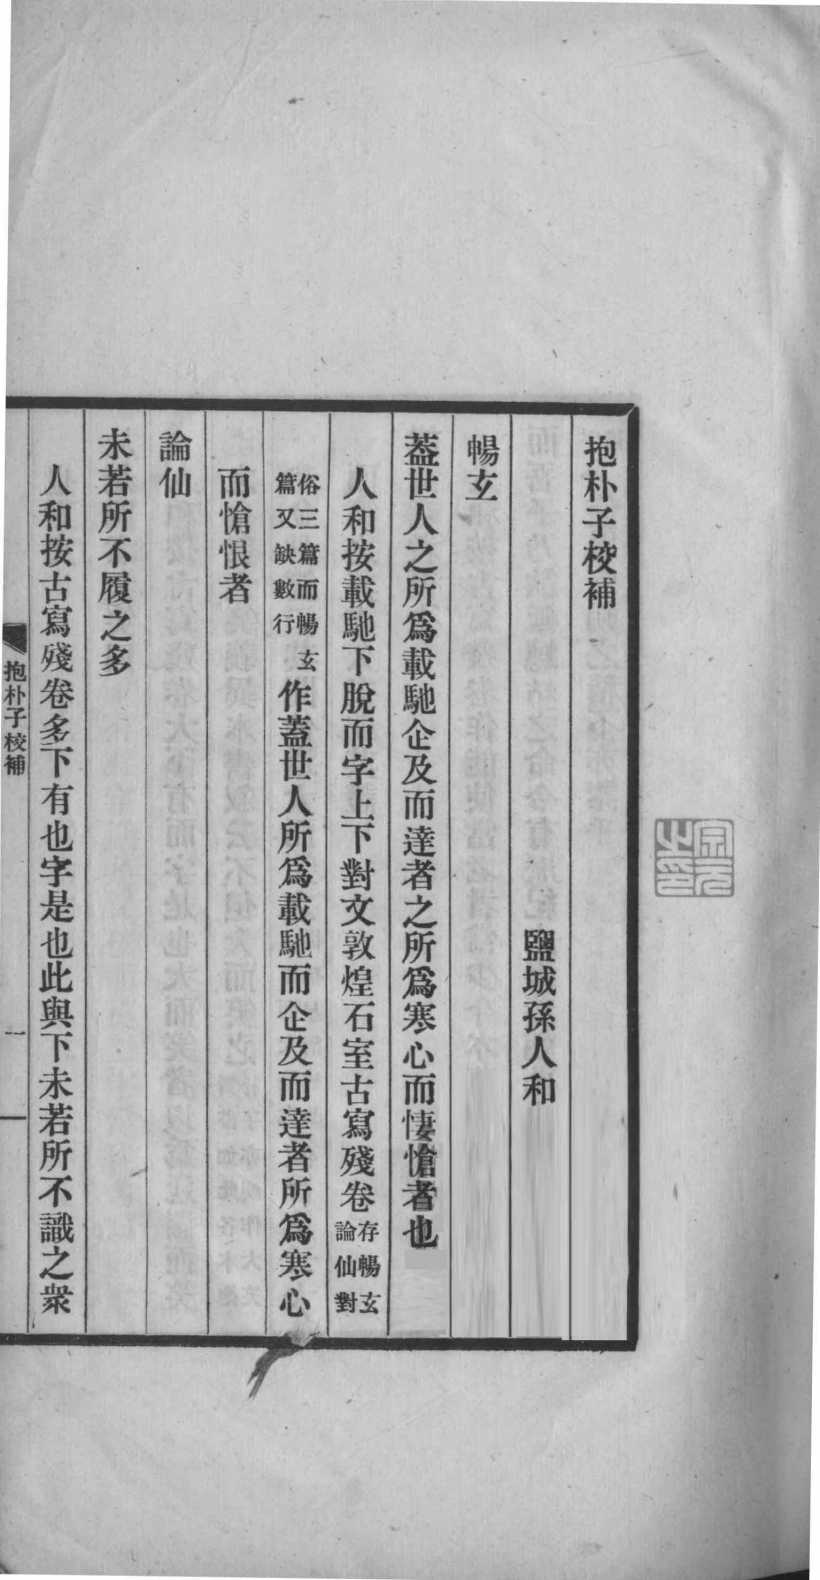 抱朴子校補
鹽城孫人和
暢玄
葢世人之所爲載馳企及而達者之所爲寒心而悽愴者也
人和按載馳下脫而字上下對文敦煌石室古寫殘卷存暢玄論仙對
俗三篇而暢玄篇又缺數行作葢世人所爲載馳而企及而達者所爲寒心
而愴恨者
論仙
未若所不履之多
人和按古寫殘卷多下有也字是也此與下未若所不識之衆
抱朴子校補
一